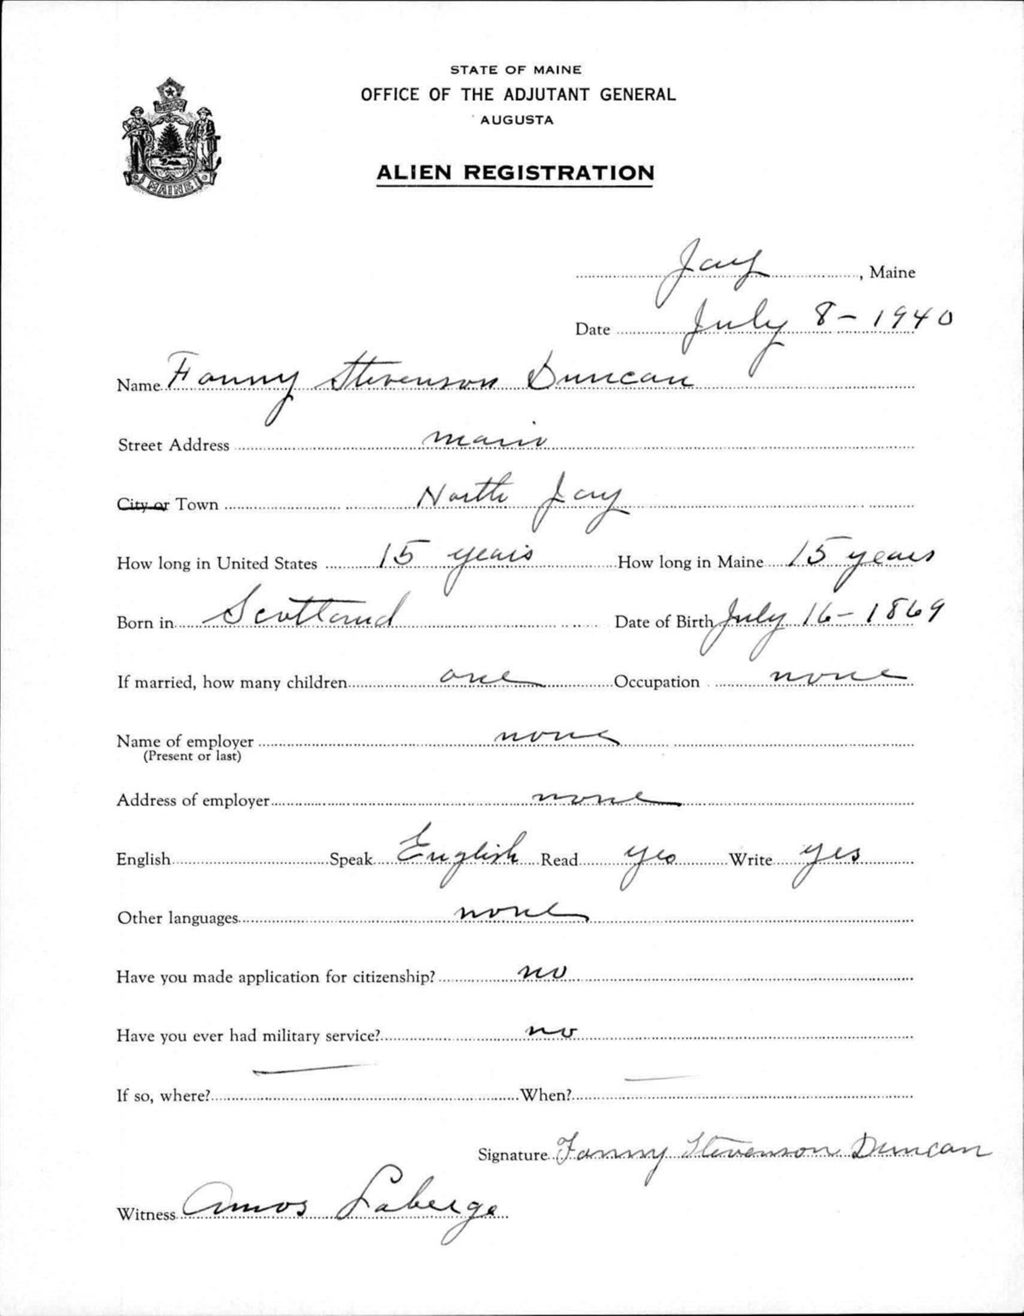 STATE OF MAINE
OFFICE OF THE ADJUTANT GENERAL
AUGUSTA
ALIEN REGISTRATION
MAINE
Jay, Maine
Date July 8-1940
Name Fanny Stevenson Duncan
Street Address main
City or Town North Jay
How long in United States 15 years How long in Maine 15 years
Born in Scotland Date of Birth July 16-1869
If married, how many children one Occupation none
Name of employer none
(Present or last)
Address of employer none
English Speak English Read yes Write yes
Other languages none
Have you made application for citizenship? no
Have you ever had military service? no
If so, where? — When? —
Signature Fanny Stevenson Duncan
Witness Amos Laberge